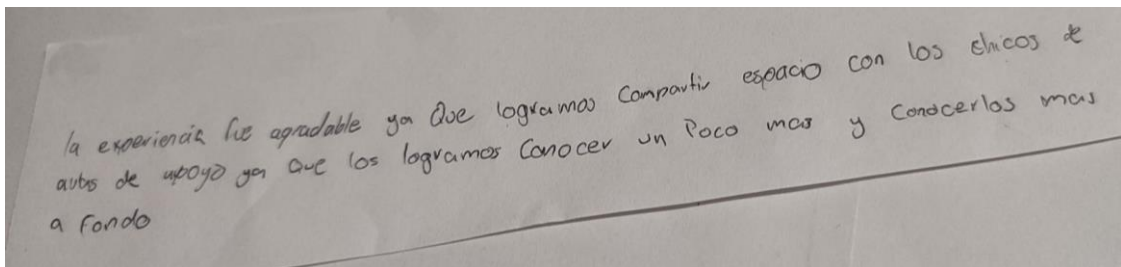 la experiencia fue agradable ya Que logramos Compartir espacio con los chicos de
autos de apoyo ya que los logramos Conocer un Poco mas y Conocerlos mas
a Fondo